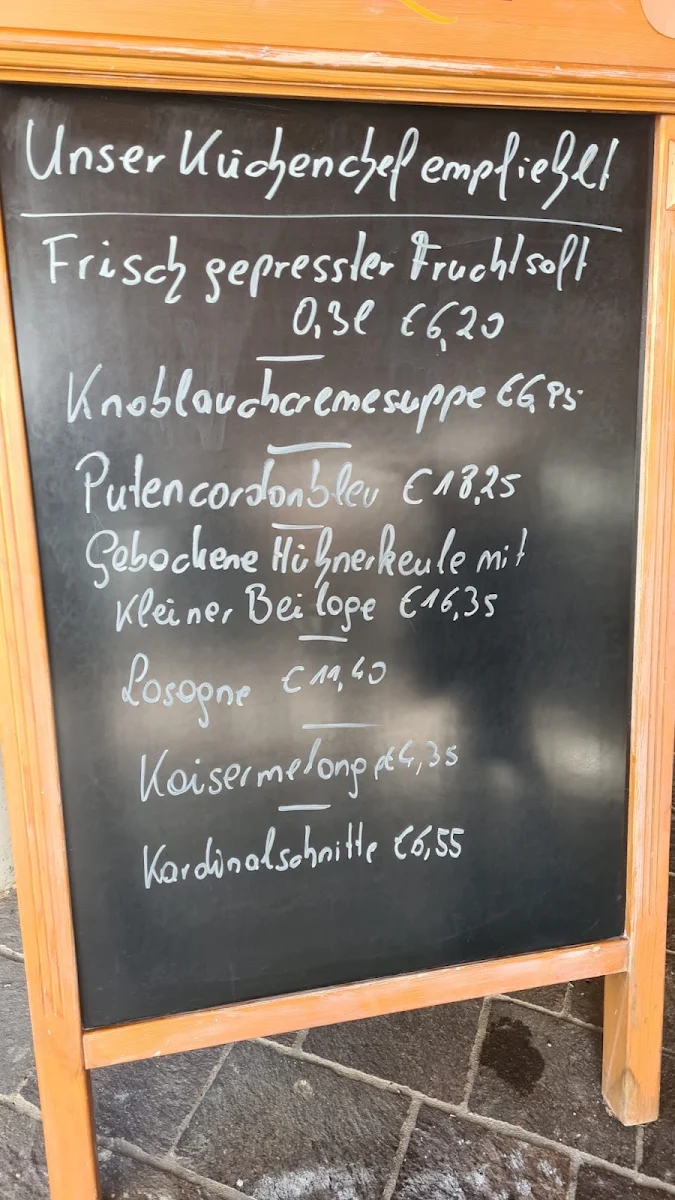 Unser Küchenchef empfiehlt
Frisch gepresster Fruchtsaft
0,3l €6,20
Knoblauchcremesuppe €6,95
Putencordonbleu €18,25
Gebackene Hühnerkeule mit
kleiner Beilage €16,35
Lasagne €11,40
Kaisermelange €4,35
Kardinalschnitte €6,55